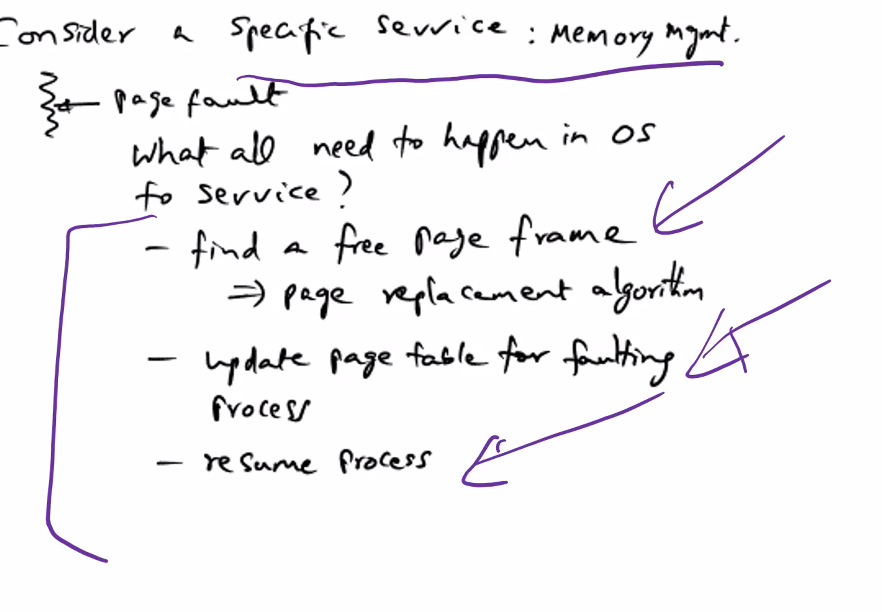 Consider a specific service : Memory mgmt.
← page fault
What all need to happen in OS
to service?
- find a free page frame
⇒ page replacement algorithm
- update page table for faulting
process
- resume process